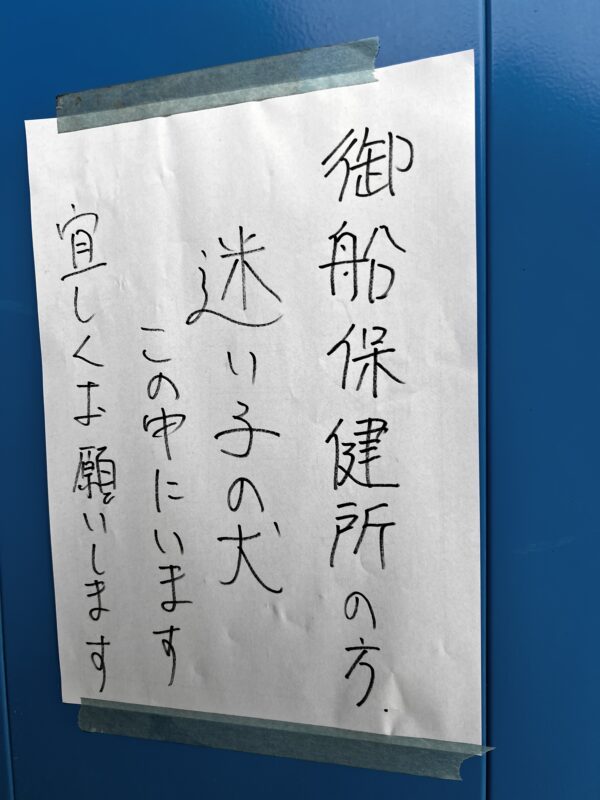 御船保健所の方.
迷い子の犬
この中にいます
宜しくお願いします